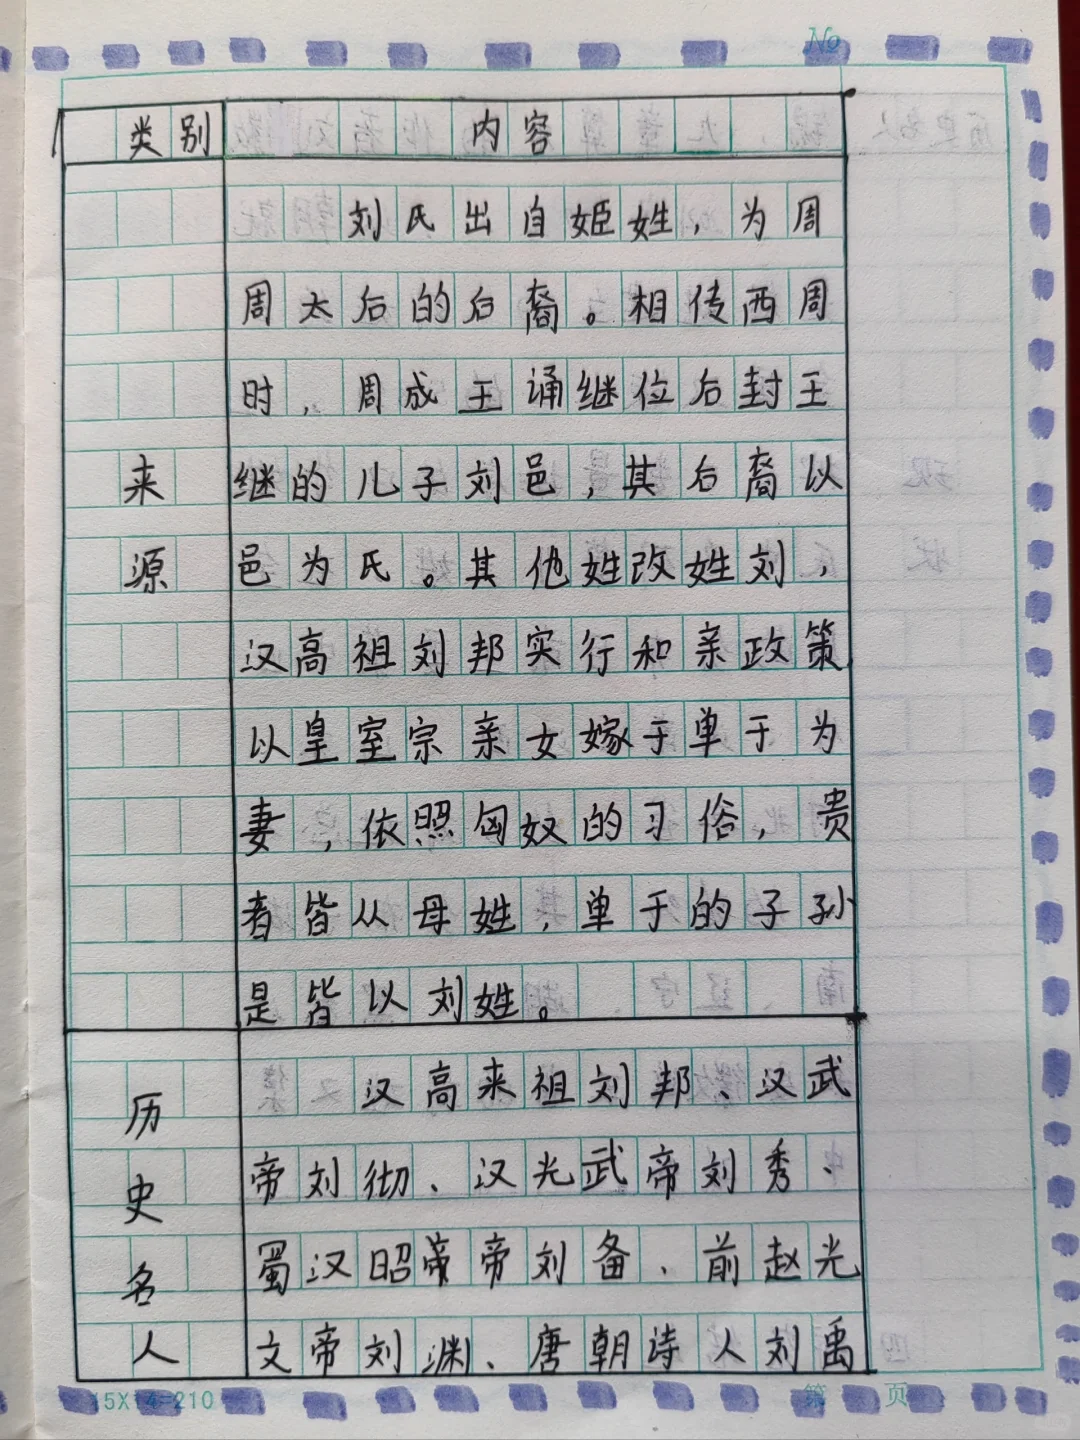 No
类别 内容
刘氏出自姬姓，为周
周太后的后裔。相传西周
时，周成王诵继位后封王
来 继的儿子刘邑，其后裔以
源 邑为氏。其他姓改姓刘，
汉高祖刘邦实行和亲政策
以皇室宗亲女嫁于单于为
妻，依照匈奴的习俗，贵
者皆从母姓，单于的子孙
是皆以刘姓。
历 汉高来祖刘邦、汉武
史 帝刘彻、汉光武帝刘秀、
名 蜀汉昭帝刘备、前赵光
人 文帝刘渊、唐朝诗人刘禹
15X14=210 第 页